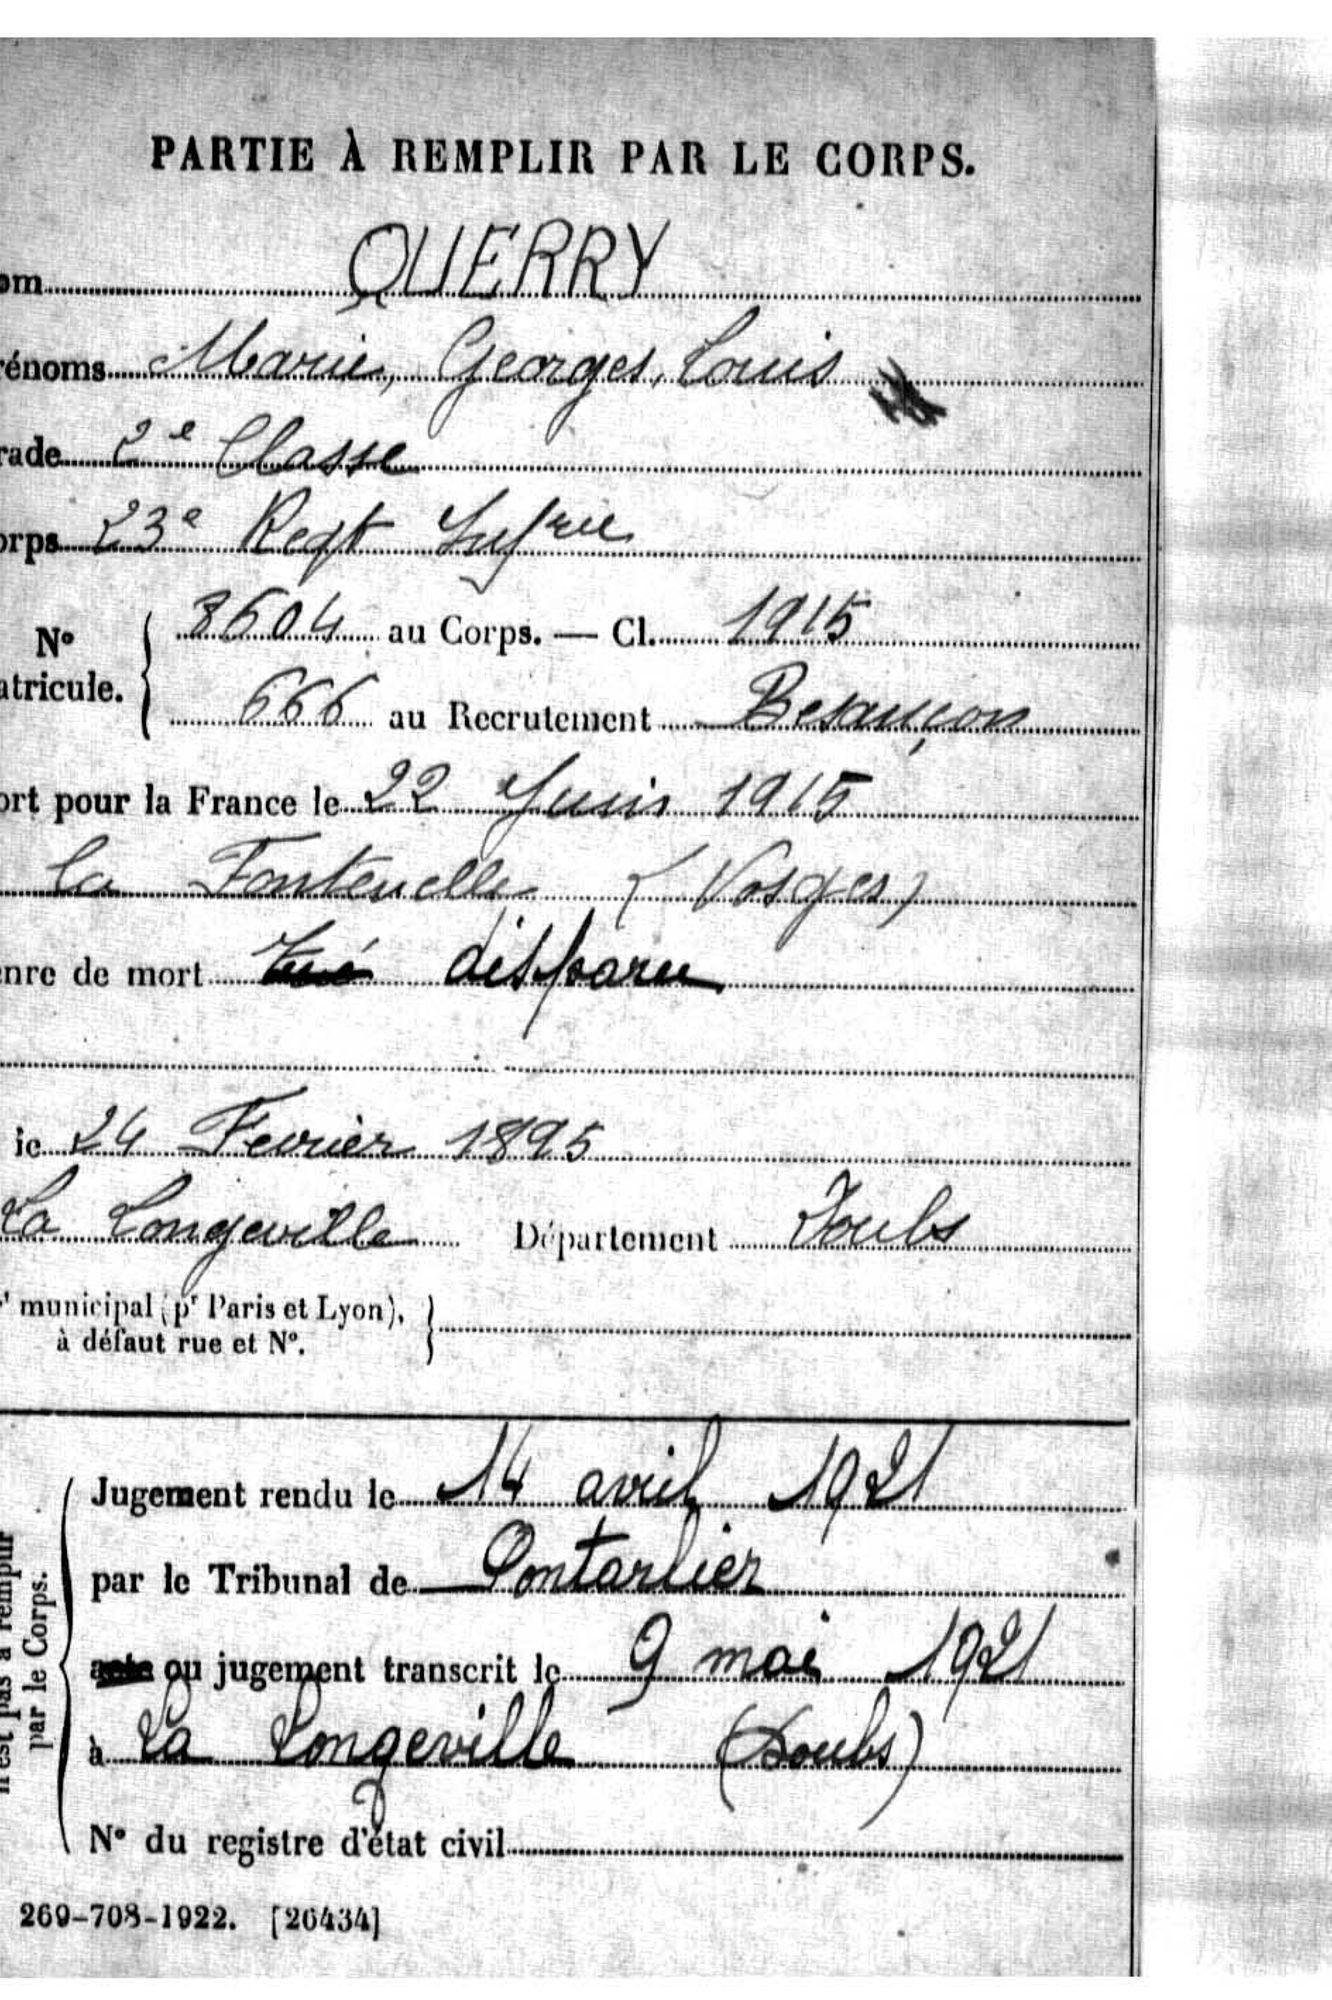 PARTIE À REMPLIR PAR LE CORPS.
om QUERRY
rénoms Marie, Georges, Louis
rade 2e Classe
orps 23e Regt Infrie
N° 8604 au Corps. — Cl. 1915
atricule. 666 au Recrutement Besançon
ort pour la France le 22 Juin 1915
la Fontenelle (Vosges)
enre de mort tué disparu
le 24 Fevrier 1895
La Longeville Département Doubs
r' municipal (pr Paris et Lyon),
à défaut rue et N°.
Jugement rendu le 14 avril 1921
par le Tribunal de Pontarlier
acte ou jugement transcrit le 9 mai 1921
à La Longeville (Doubs)
N° du registre d'état civil
n'est pas à remplir
par le Corps.
269-708-1922. [26434]